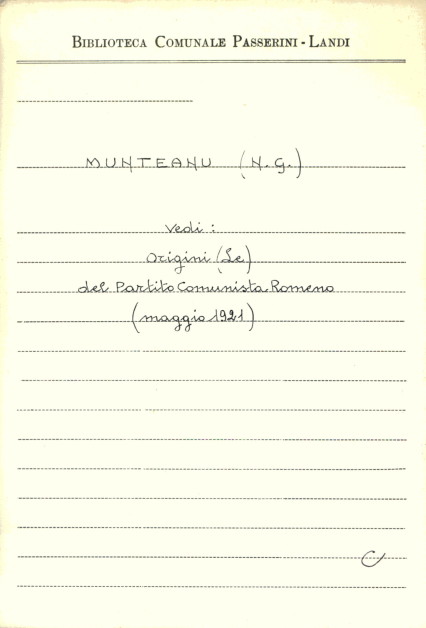 BIBLIOTECA COMUNALE PASSERINI - LANDI
MUNTEANU (N. G.)
Vedi :
Origini (Le)
del Partito Comunista Romeno
(maggio 1921)
C